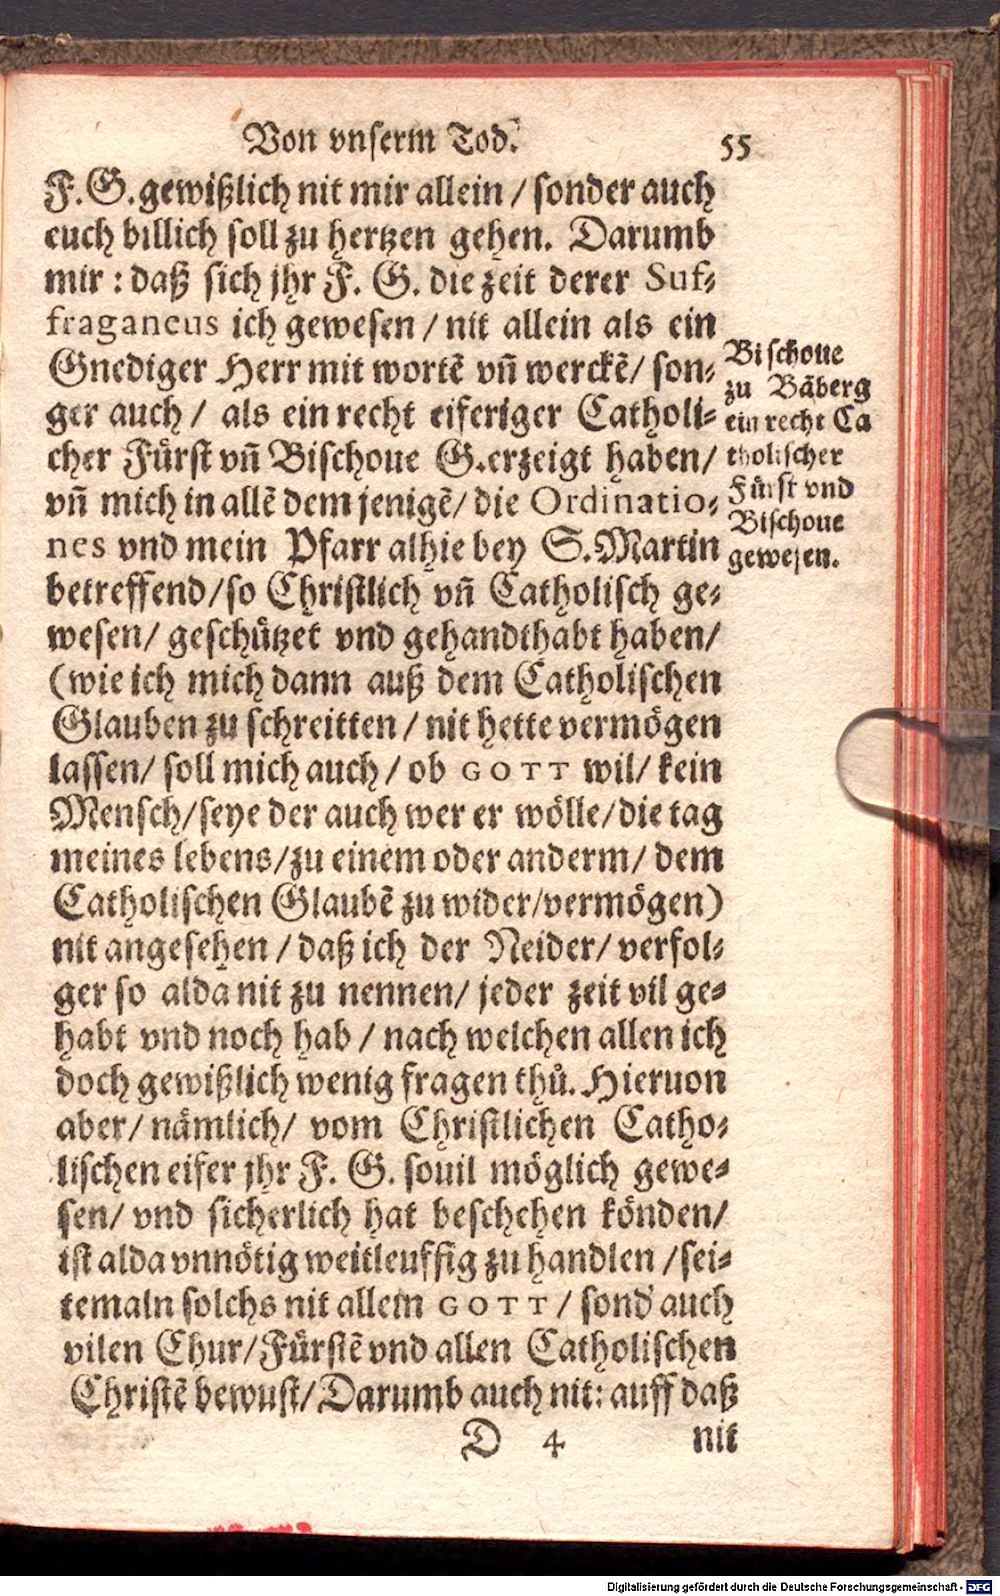 Von vnserm Tod.
55
F. G. gewißlich nit mir allein / sonder auch
euch billich soll zu hertzen gehen. Darumb
mir : daß sich jhr F. G. die zeit derer Suf-
fraganeus ich gewesen / nit allein als ein
Gnediger Herr mit wortẽ vñ werckẽ / son-
ger auch / als ein recht eiferiger Catholi-
cher Fürst vñ Bischoue G. erzeigt haben /
vñ mich in allẽ dem jenigẽ / die Ordinatio-
nes vnd mein Pfarr alhie bey S. Martin
betreffend / so Christlich vñ Catholisch ge-
wesen / geschützet vnd gehandthabt haben /
(wie ich mich dann auß dem Catholischen
Glauben zu schreitten / nit hette vermögen
lassen / soll mich auch / ob GOTT wil / kein
Mensch / seye der auch wer er wölle / die tag
meines lebens / zu einem oder anderm / dem
Catholischen Glaubẽ zu wider / vermögen)
nit angesehen / daß ich der Neider / verfol-
ger so alda nit zu nennen / jeder zeit vil ge-
habt vnd noch hab / nach welchen allen ich
doch gewißlich wenig fragen thů. Hieruon
aber / nämlich / vom Christlichen Catho-
lischen eifer jhr F. G. souil möglich gewe-
sen / vnd sicherlich hat beschehen könden /
ist alda vnnötig weitleuffig zu handlen / sei-
temaln solchs nit allein GOTT / sond' auch
vilen Chur / Fürstẽ vnd allen Catholischen
Christẽ bewust / Darumb auch nit: auff daß
D 4
nit
Bischoue
zu Bãberg
ein recht Ca
tholischer
Fürst vnd
Bischoue
gewesen.
Digitalisierung gefördert durch die Deutsche Forschungsgemeinschaft - DFG